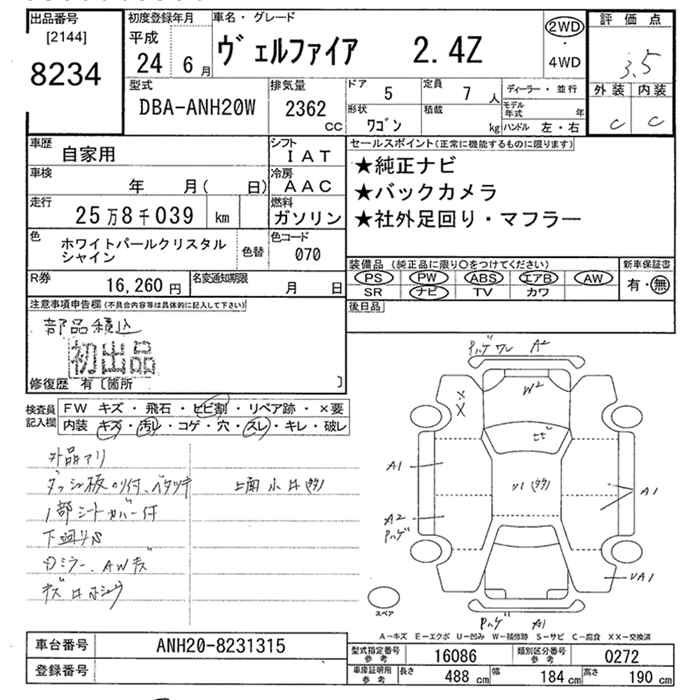 出品番号 初度登録年月 車名・グレード 評価点
[2144] 平成 2WD
8234 24 6月 ヴェルファイア 2.4Z ・4WD 3.5
型式 排気量 ドア 5 定員 7人 ディーラー・並行 外装 内装
DBA-ANH20W 2362cc 形状 ワゴン 積載 kg モデル年式 年 ハンドル 左・右 C C
車歴 自家用 シフト IAT セールスポイント(正常に機能するものに限ります)
車検 年 月( 日) 冷房 AAC ★純正ナビ
走行 25万8千039 km 燃料 ガソリン ★バックカメラ
★社外足回り・マフラー
色 ホワイトパールクリスタルシャイン 色替 色コード 070
装備品 (純正品に限り○をつけてください) 新車保証書
R券 16,260円 名変通知期限 月 日 PS PW ABS エアB AW 有・無
SR ナビ TV カワ
注意事項申告欄(不具合内容等は具体的に記入して下さい) 後日品
部品積込
初出品
修復歴 有〔箇所 〕
検査員記入欄 FW キズ・飛石・ヒビ割・リペア跡・×要
内装 キズ・汚レ・コゲ・穴・スレ・キレ・破レ
外品アリ
1部シートカバー付
ドミラー、AWキズ
A2
W2
XX
ヒビ
A1
A1
A2
UA1
A1
スペア
A-キズ E-エクボ U-凹み W-補修跡 S-サビ C-腐食 XX-交換済
車台番号 ANH20-8231315
登録番号
型式指定番号 参考 16086 類別区分番号 参考 0272
車庫証明用 参考 長さ 488cm 幅 184cm 高さ 190cm